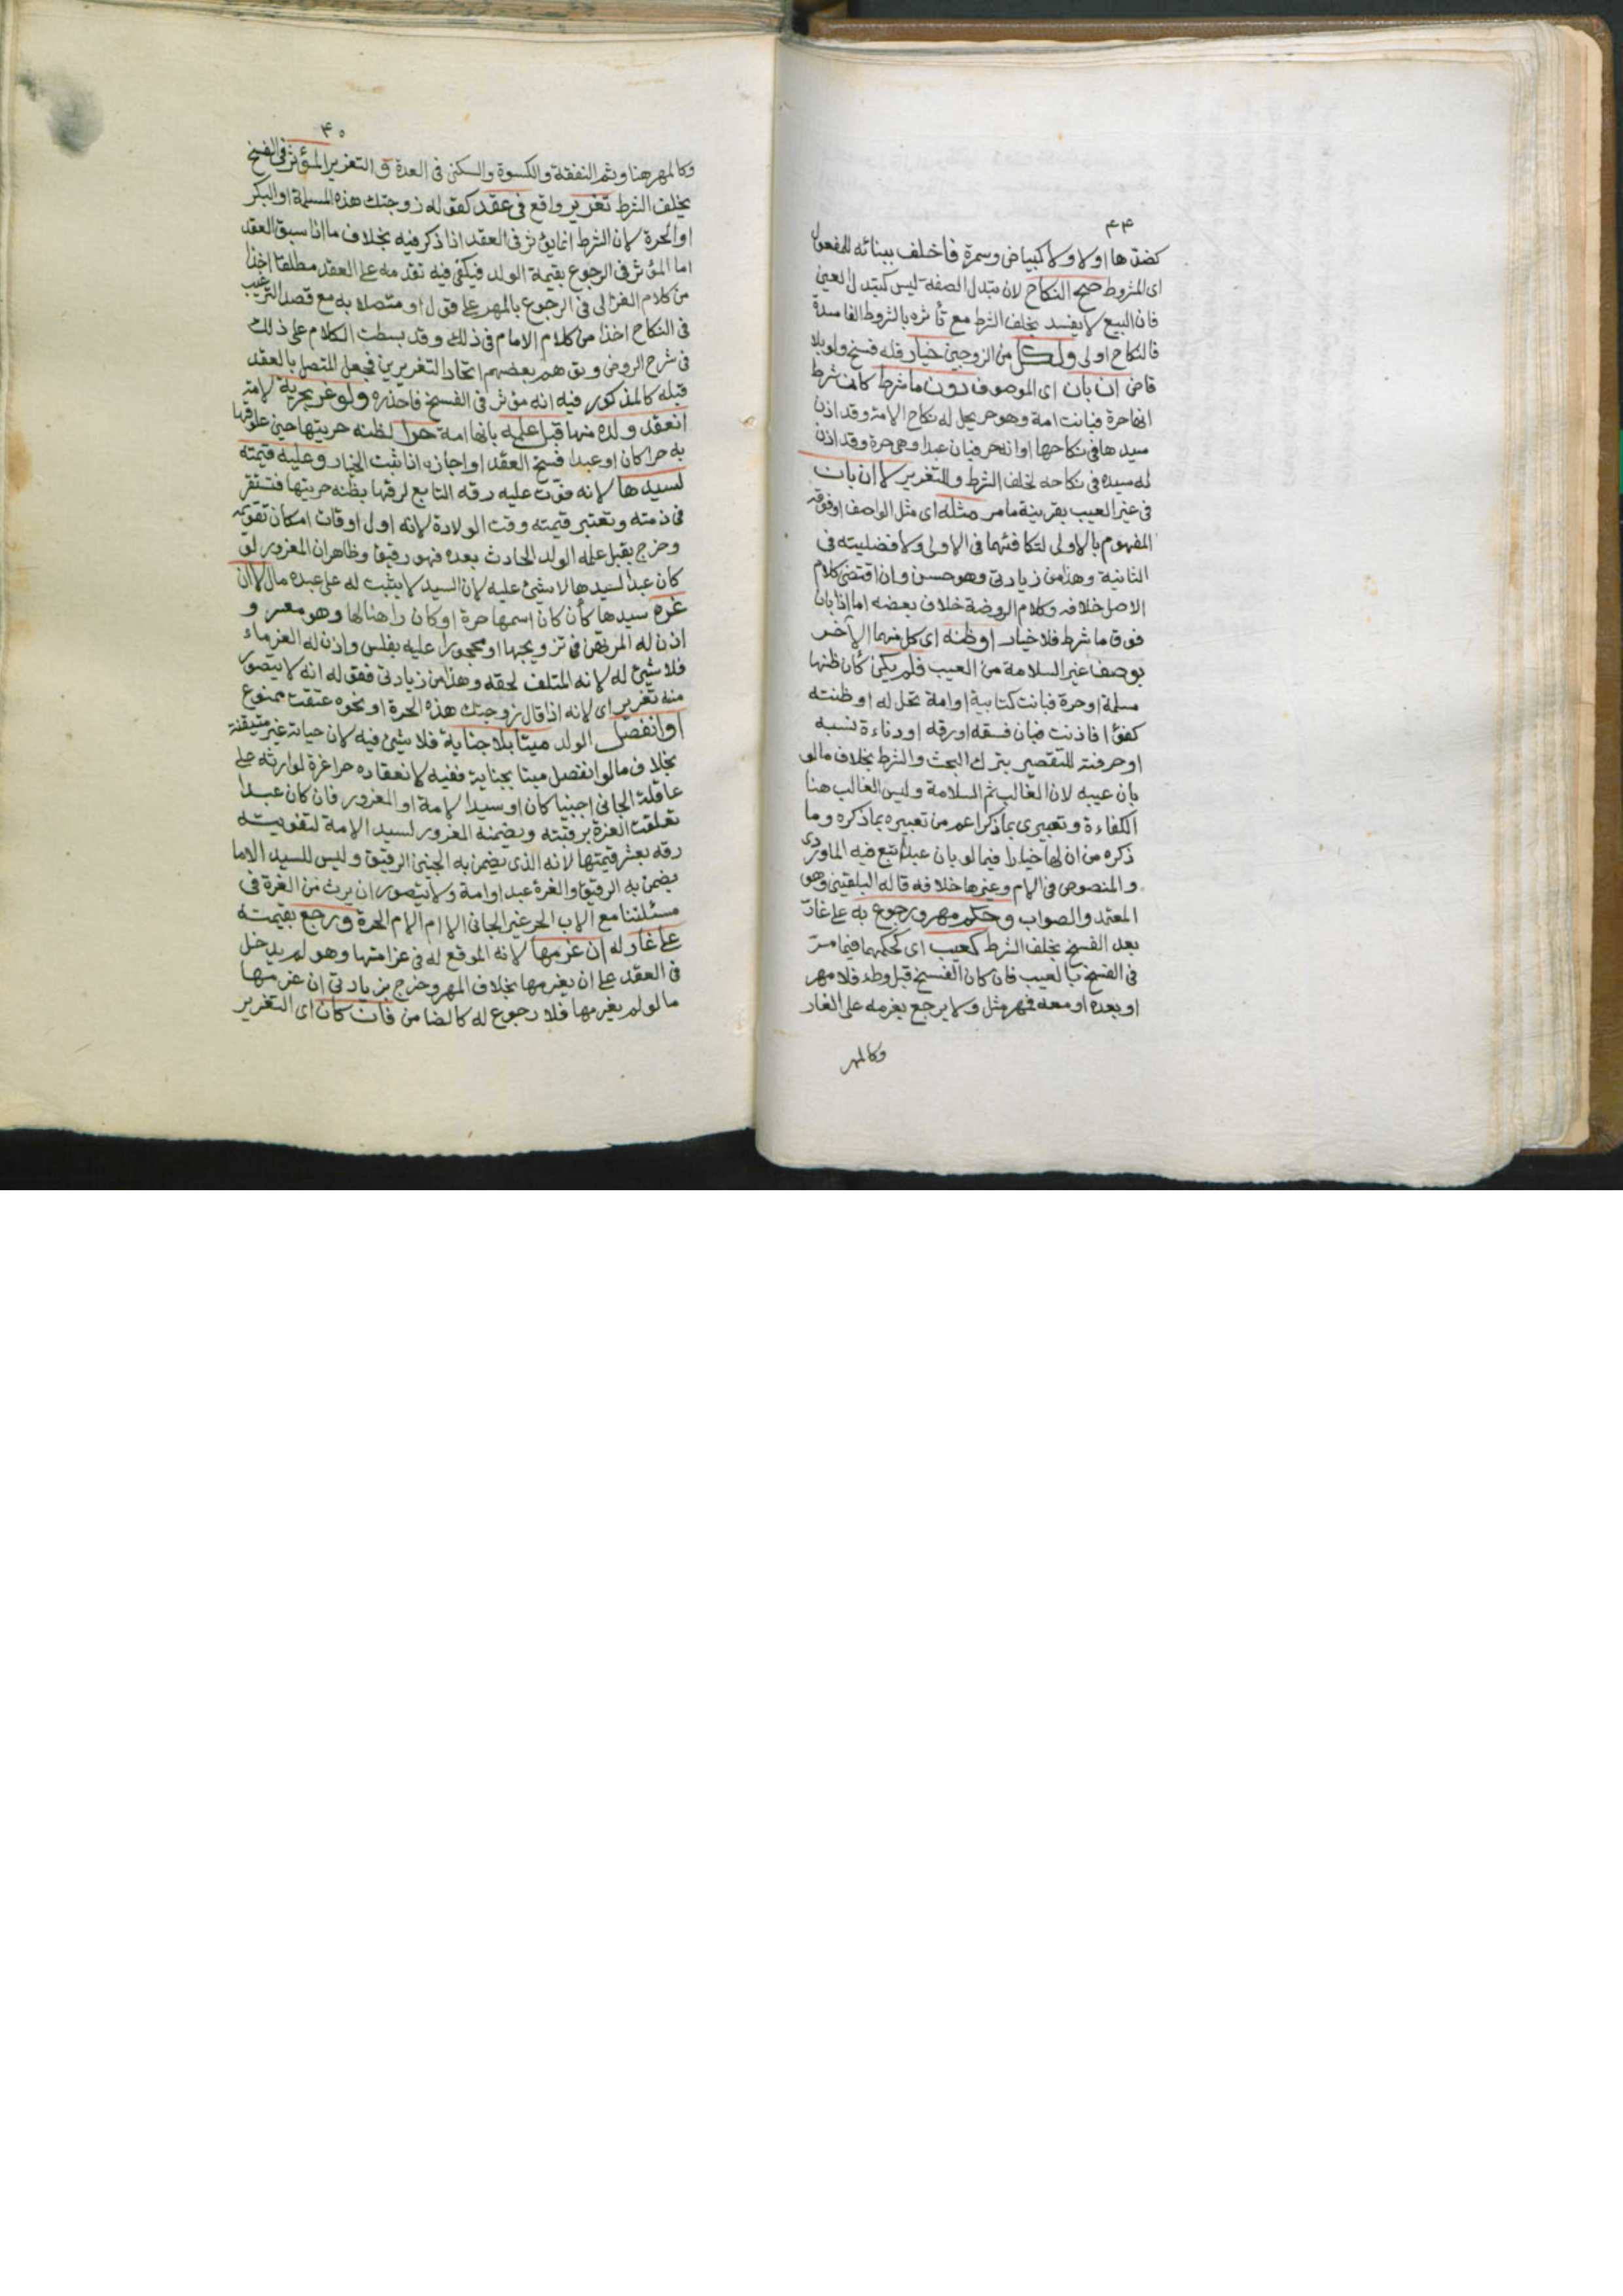 ٤٤
كضدها اولا ولا كبياض وسمرة فاخلف ببنائه للمفعول
اى المشروط صح النكاح لان تبدل الصفة ليس كتبدل العين
فان البيع لا يفسد بخلف الشرط مع تأثره بالشروط الفاسدة
فالنكاح اولى ولكل من الزوجين خيار فله فسخ ولو بلا
قاض ان بان اى الموصوف دون ما شرط كان شرط
انها حرة فبانت امة وهو حر يحل له نكاح الامة وقد اذن
سيدها فى نكاحها او انه حر فبان عبدا وهى حرة وقد اذن
له سيده فى نكاحه لخلف الشرط وللتغرير لا ان بان
فى غير العيب بقرينة مامر مثله اى مثل الواصف او فوقه
المفهوم بالاولى لتكافئهما فى الاولى ولافضليته فى
الثانية وهذا من زيادتى وهو حسن وان اقتضى كلام
الاصل خلافه وكلام الروضة خلاف بعضه اما اذا بان
فوق ما شرط فلا خيار او ظنه اى كل منهما الآخر
بوصف غير السلامة من العيب فلم يكن كأن ظنها
مسلمة او حرة فبانت كتابية او امة تحل له او ظنته
كفؤا فاذنت فبان فسقه او رقه او دناءة نسبه
او حرفته للتقصير بترك البحث والشرط بخلاف مالو
بان عيبه لان الغالب ثم السلامة وليس الغالب هنا
الكفاءة وتعبيرى بما ذكر اعم من تعبيره بما ذكره وما
ذكره من ان لها خيارا فيما لو بان عبدا تبع فيه الماوردى
والمنصوص فى الام وغيرها خلافه قاله البلقينى وهو
المعتمد والصواب وحكم مهر ورجوع به على غارّ
بعد الفسخ بخلف الشرط كعيب اى كحكمهما فيما مرّ
فى الفسخ بالعيب فان كان الفسخ قبل وطء فلا مهر
او بعده او معه فمهر مثل ولا يرجع بغرمه على الغار
وكالمهر
٤٥
وكالمهر هنا وثم النفقة والكسوة والسكنى فى العدة و التغرير المؤثر فى الفسخ
بخلف الشرط تغرير واقع فى عقد كقوله زوجتك هذه المسلمة او البكر
او الحرة لان الشرط انما يؤثر فى العقد اذا ذكر فيه بخلاف ما اذا سبق العقد
اما المؤثر فى الرجوع بقيمة الولد فيكفى فيه تقدمه على العقد مطلقا اخذا
من كلام الغزالى فى الرجوع بالمهر على قول او متصلا به مع قصد الترغيب
فى النكاح اخذا من كلام الامام فى ذلك وقد بسطت الكلام على ذلك
فى شرح الروض وتوهم بعضهم اتحاد التغريرين فجعل المتصل بالعقد
قبله كالمذكور فيه انه مؤثر فى الفسخ فاحذره ولو غر بحرية لامة
انعقد ولده منها قبل علمه بانها امة حرا لظنه حريتها حين علوقها
به حرا كان او عبدا فسخ العقد او اجازه اذا ثبت الخيار وعليه قيمته
لسيدها لانه فوّت عليه رقه التابع لرقها بظنه حريتها فتستقر
فى ذمته وتعتبر قيمته وقت الولادة لانه اول اوقات امكان تقويمه
وخرج بقبل علمه الولد الحادث بعده فهو رقيق وظاهر ان المغرور لو
كان عبدا لسيدها لا شئ عليه لان السيد لا يثبت له على عبده مال لا ان
غره سيدها كأن كان اسمها حرة او كان راهنا لها وهو معسر و
اذن له المرتهن فى تزويجها او محجورا عليه بفلس واذن له الغرماء
فلا شئ له لانه المتلف لحقه وهذا من زيادتى فقوله انه لا يتصور
منه تغرير اى لانه اذا قال زوجتك هذه الحرة او نحوه عتقت ممنوع
او انفصل الولد ميتا بلا جناية فلا شئ فيه لان حياته غير متيقنة
بخلاف مالو انفصل ميتا بجناية ففيه لانعقاده حرا غرة لوارثه على
عاقلة الجانى اجنبيا كان او سيد الامة او المغرور فان كان عبدا
تعلقت الغرة برقبته ويضمنه المغرور لسيد الامة لتفويته
رقه بعشر قيمتها لانه الذى يضمن به الجنين الرقيق وليس للسيد الا ما
يضمن به الرقيق والغرة عبد او امة ولا يتصور ان يرث من الغرة فى
مسئلتنا مع الاب الحر غير الجانى الا ام الام الحرة ورجع بقيمته
على غار له ان غرمها لانه الموقع له فى غرامتها وهو لم يدخل
فى العقد على ان يغرمها بخلاف المهر وخرج بزيادتى ان غرمها
مالو لم يغرمها فلا رجوع له كالضامن فان كان اى التغرير